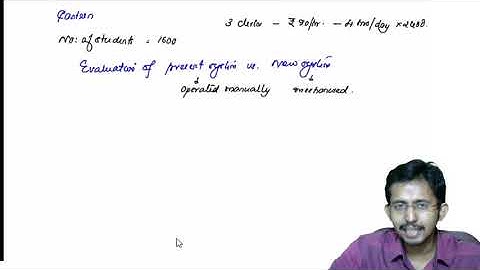 Eastern
3 clerks — ₹ 20/hr. — 4 hrs/day ×
No: of students = 1600
Evaluation of present system vs. New system
operated manually mechanised.